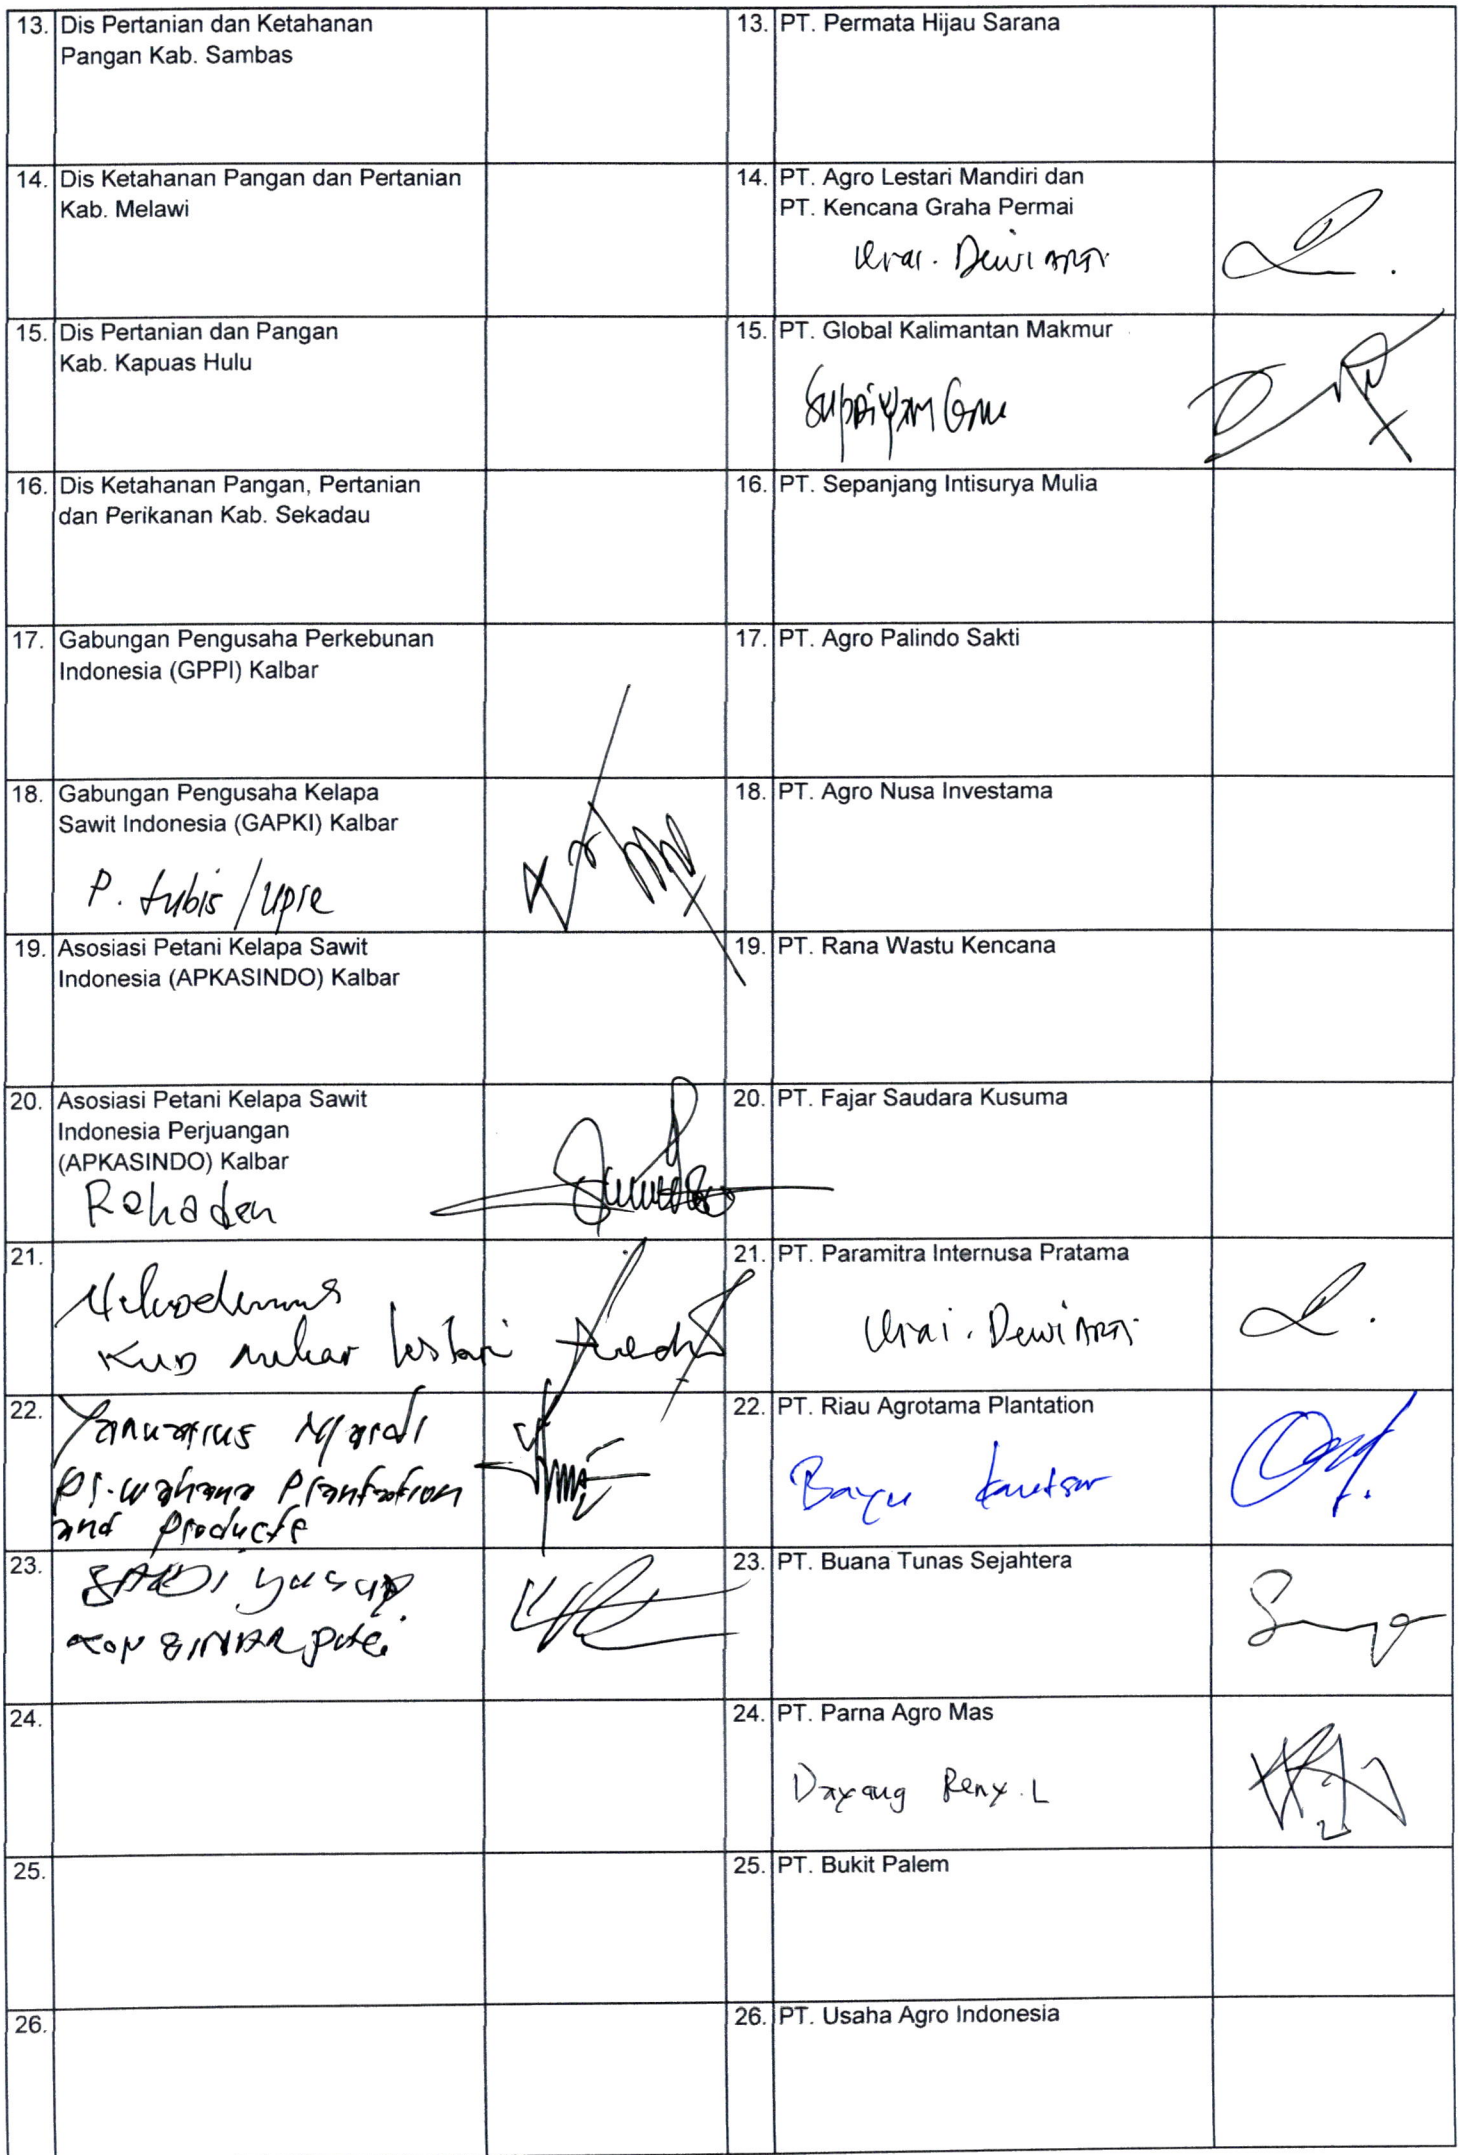 13. Dis Pertanian dan Ketahanan
Pangan Kab. Sambas
13. PT. Permata Hijau Sarana
14. Dis Ketahanan Pangan dan Pertanian
Kab. Melawi
14. PT. Agro Lestari Mandiri dan
PT. Kencana Graha Permai
Urai. Dewi
15. Dis Pertanian dan Pangan
Kab. Kapuas Hulu
15. PT. Global Kalimantan Makmur
16. Dis Ketahanan Pangan, Pertanian
dan Perikanan Kab. Sekadau
16. PT. Sepanjang Intisurya Mulia
17. Gabungan Pengusaha Perkebunan
Indonesia (GPPI) Kalbar
17. PT. Agro Palindo Sakti
18. Gabungan Pengusaha Kelapa
Sawit Indonesia (GAPKI) Kalbar
P.
18. PT. Agro Nusa Investama
19. Asosiasi Petani Kelapa Sawit
Indonesia (APKASINDO) Kalbar
19. PT. Rana Wastu Kencana
20. Asosiasi Petani Kelapa Sawit
Indonesia Perjuangan
(APKASINDO) Kalbar
20. PT. Fajar Saudara Kusuma
21.
21. PT. Paramitra Internusa Pratama
Urai. Dewi
22. Yanuarius
PT. Wahana Plantation
and Products
22. PT. Riau Agrotama Plantation
Bayu
23.
23. PT. Buana Tunas Sejahtera
24.
24. PT. Parna Agro Mas
Dayang Reny. L
25.
25. PT. Bukit Palem
26.
26. PT. Usaha Agro Indonesia